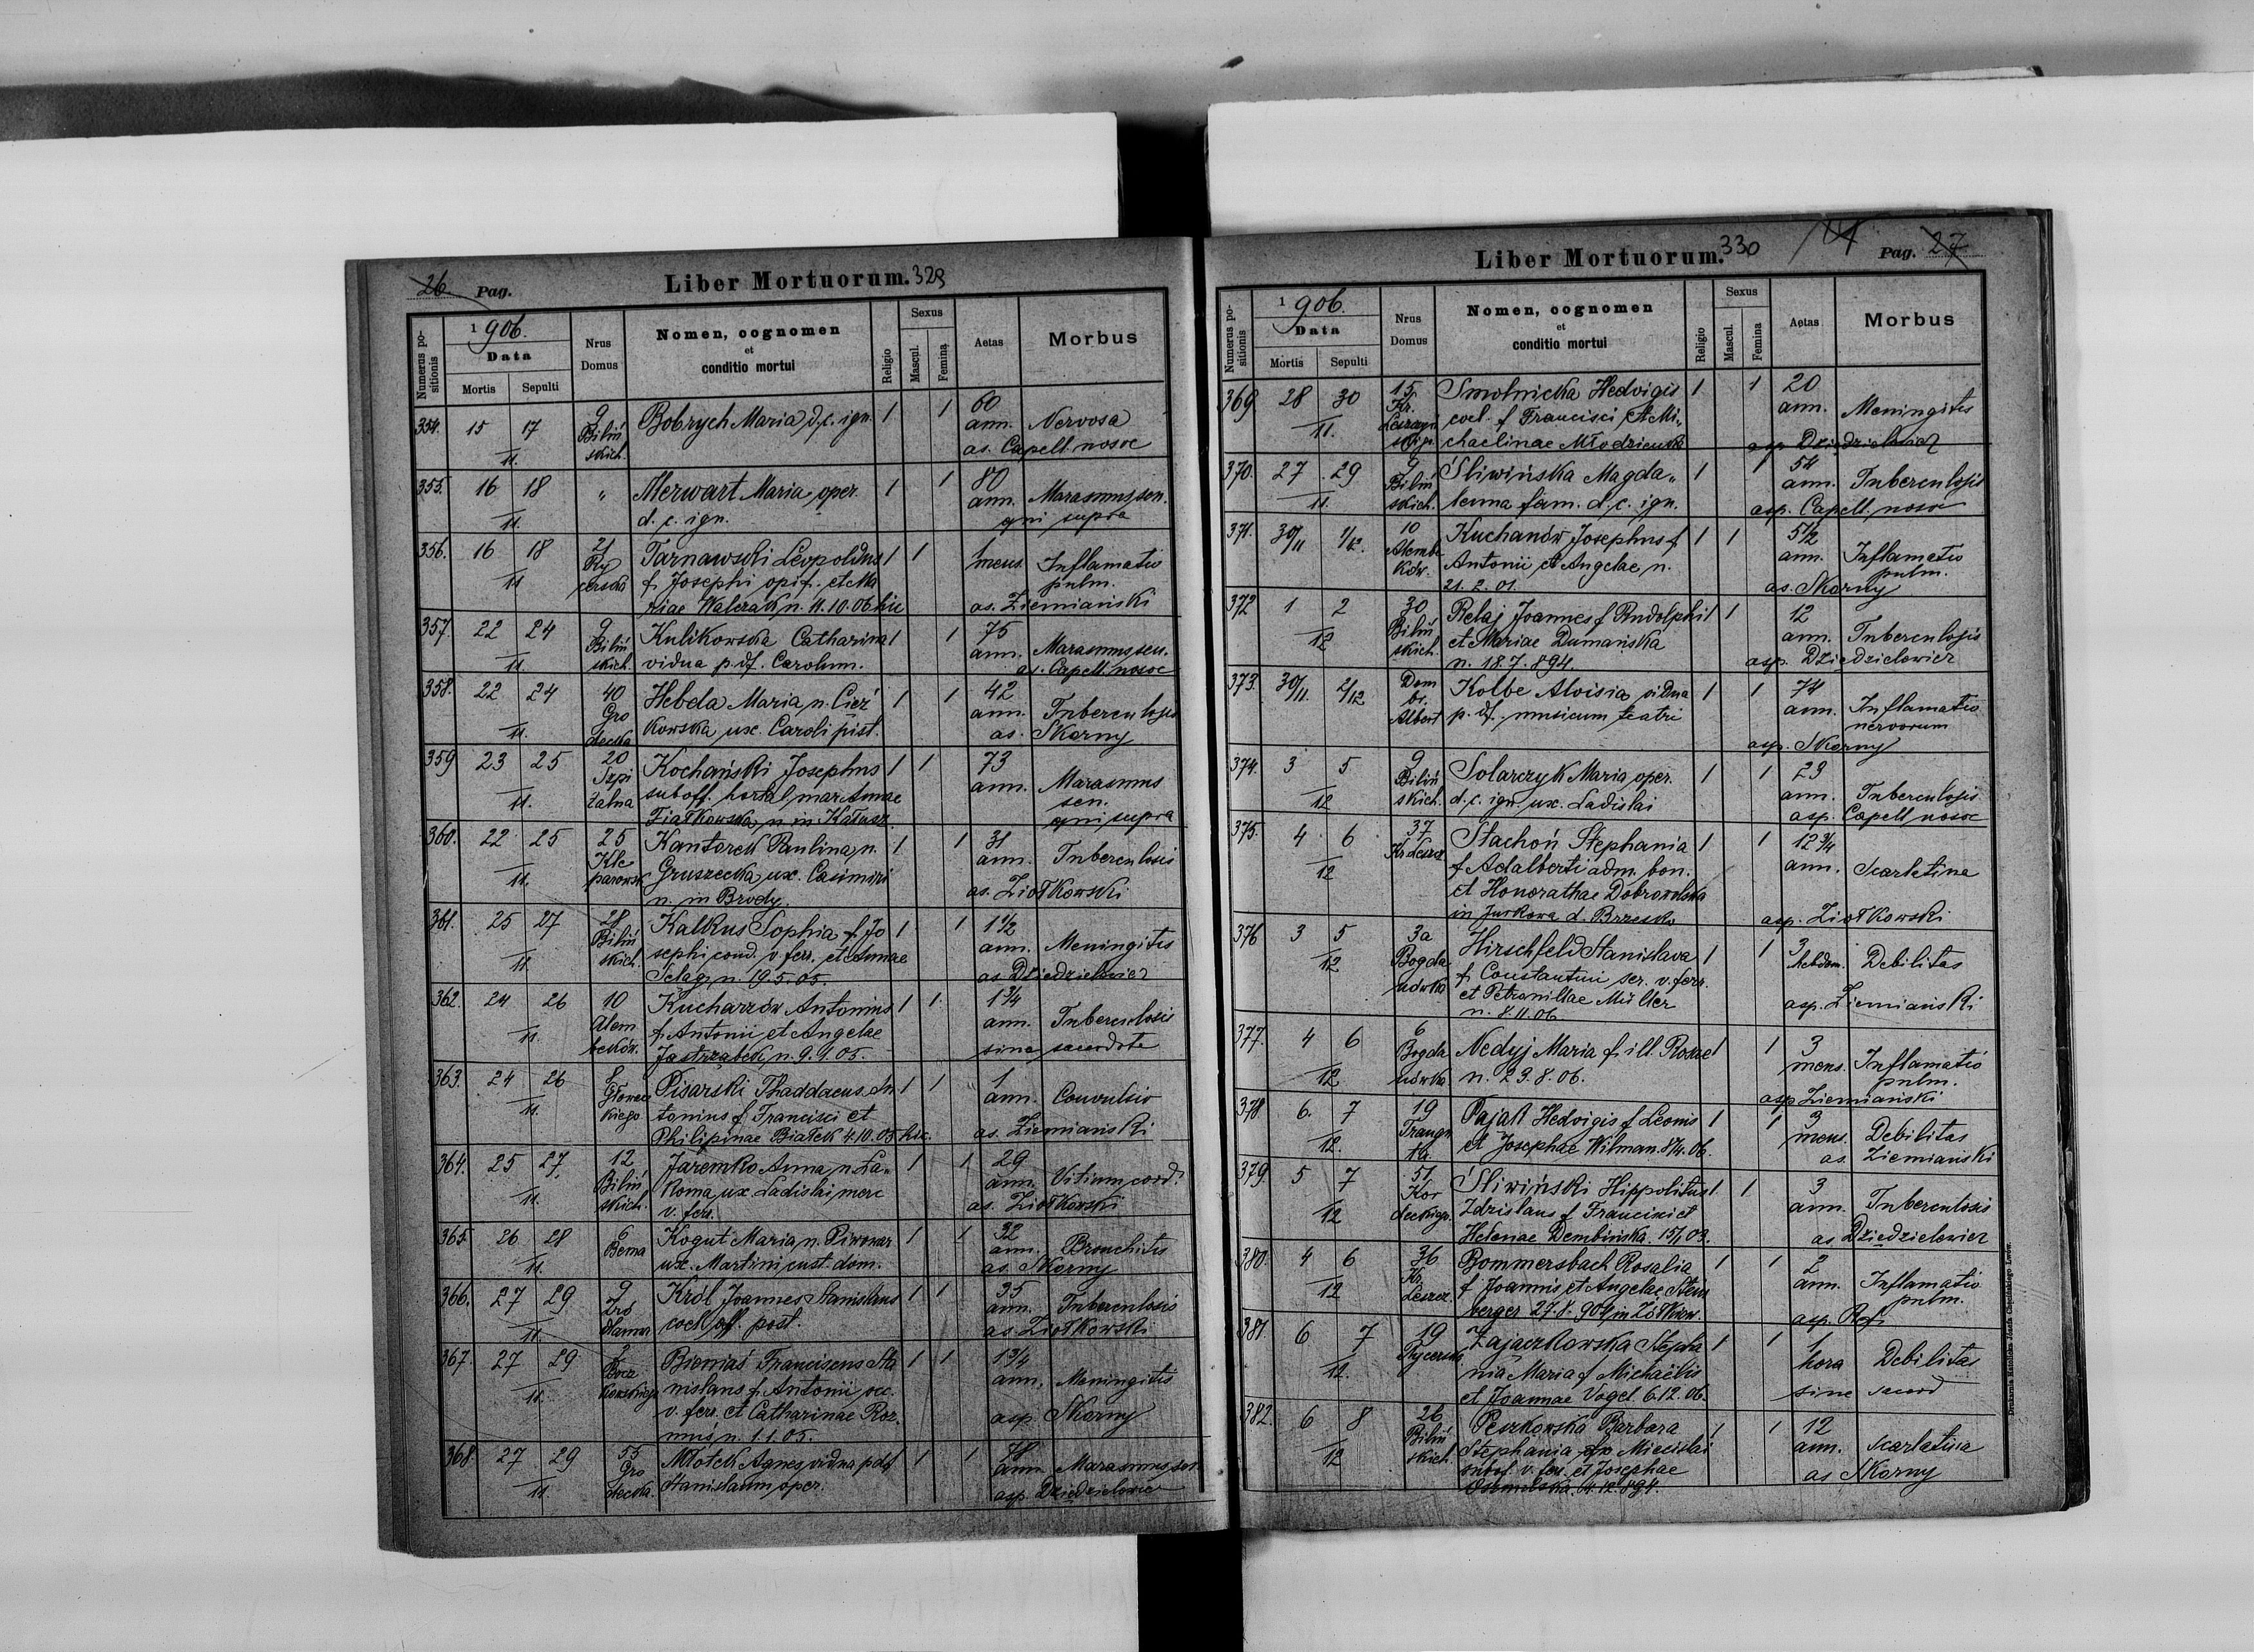 26 Pag. Liber Mortuorum. 329
Numerus positionis
1906.
Data
Mortis Sepulti
Nrus Domus
Nomen, cognomen
et
conditio mortui
Religio
Sexus
Mascul. Femina
Aetas
Morbus
354. 15 17 9 Bobrych Maria, d. c. ign. 1 1 60
11. Biliń ann. Nervosa
skich. as. Capell. nosoc
355. 16 18 " Merwart Maria, oper. 1 1 80
11. d. c. ign. ann. Marasmus sen.
qui supra
356. 16 18 21 Tarnawski Leopoldus 1 1 1
11 Ry f. Josephi opif. et Ma mens. Inflamatio
cerska riae Walczak n. 11.10.06 hic pulm.
as. Ziemiański
357. 22 24 9 Kulikowska Catharina 1 1 75
11 Biliń vidua p. df. Carolum. ann. Marasmus sen.
skich. as. Capell. nosoc
358. 22 24 40 Hebda Maria n. Cież 1 1 42
11. Gro kowska, ux. Caroli pist. ann. Tuberculosis
decka as. Skorny
359 23 25 20 Kochański Josephus 1 1 73
11. Szpi suboff. hortal. mar. Annae ann. Marasmus
talna Fiałkowska, n. in Kałusz. sen.
qui supra
360. 22 25 25 Kantorek Paulina, n. 1 1 31
11. Kle Gruszecka, ux. Casimiri ann. Tuberculosis
parowsk n. in Brody. as. Ziołkowski
361. 25 27 28 Kalkus Sophia f. Jo 1 1 1 1/2
11 Biliń sephi cond. v. ferr. et Annae ann. Meningitis
skich. Szlag, n. 19.5.05. as Dziedzielewicz
362. 24 26 10 Kucharzów Antonius 1 1 1 3/4
11 Alem f. Antonii et Angelae ann. Tuberculosis
beków. Jastrząbek, n. 9.1.05. sine sacerdote
363. 24 26 8 Pisarski Thaddaeus An 1 1 1
11. Głowac tonius f. Francisci et ann. Convulsio
kiego Philipinae Białek 4.10.05 hic. as. Ziemiański
364. 25 27. 12 Jaremko Anna n. Ła 1 1 29
11. Biliń koma, ux. Ladislai merc ann. Vitium cord.
skich. v. ferr. as. Ziołkowski
365. 26 28 6 Kogut Maria n. Piwowar 1 1 32
11. Bema ux. Martini cust. dom. ann. Bronchitis
as. Skorny
366. 27 29 9 Król Joannes Stanislaus 1 1 35
11. Zró coel. off. post. ann. Tuberculosis
dlana as Ziołkowski
367. 27 29 2 Bieniaś Franciscus Sta 1 1 1 3/4
11. nislaus f. Antonii occ. ann. Meningitis
kowskiego v. ferr. et Catharinae Roz
mus n. 1.1.05. asp. Skorny
368. 27 29 55 Młotek Agnes vidua p. df. 1 1 78
11. Gro Stanislaum oper. ann. Marasmus sen
decka. asp. Dziedzielewicz
Liber Mortuorum. 330 Pag. 27
Numerus positionis
1906.
Data
Mortis Sepulti
Nrus Domus
Nomen, cognomen
et
conditio mortui
Religio
Sexus
Mascul. Femina
Aetas
Morbus
369 28 30 15 Smolnicka Hedvigis 1 1 20
11. Kr. coel. f. Francisci et Mi ann. Meningitis
Leszczyń chaelinae Młodzieńsk asp. Dziedzielewicz
370. 27 29 9 Śliwińska Magda 1 1 54
11. Biliń lenna fam. d. c. ign. ann. Tuberculosis
skich. asp. Capell. nosoc
371. 30/11 1/12 10 Kucharzów Josephus f 1 1 5 1/2
Alembe Antonii et Angelae n. ann. Inflamatio
ków. 21.2.01. pulm.
as. Skorny
372 1 2 30 Relaj Joannes f Rudolphi 1 1 12
12 Biliń et Mariae Dumańska ann. Tuberculosis
skich. n. 18.7.894. asp. Dziedzielewicz
373. 30/11 2/12 Dom Kolbe Aloisia, vidua 1 1 74
br. p. df. musicum teatri ann. Inflamatio
Albert nervorum
asp. Skorny
374. 3 5 9 Solarczyk Maria, oper. 1 1 23
12 Biliń d. c. ign. ux. Ladislai ann. Tuberculosis
skich. asp. Capell. nosoc
375. 4 6 37 Stachoń Stephania 1 1 12 3/4
12 Kr Leszcz f. Adalberti adm. bon. ann. Scarlatina
et Honorathae Dobrowolska
in Jurkowa d. Brzesko asp. Ziołkowski
376 3 5 3a Hirschfeld Stanislava 1 1 3
12 Bogda f. Constantini ser. v. ferr. hebdom. Debilitas
nówka et Petronillae Müller asp. Ziemiański
n. 8.11.06
377. 4 6 6 Nedyj Maria f. ill. Rosae 1 1 3
12 Bogda n. 23.8.06. mens. Inflamatio
nówka pulm.
asp Ziemiański
378 6. 7 19 Pająk Hedvigis f Leonis 1 1 3
12. et Josephae Wilman. 8/4.06. mens. Debilitas
as. Ziemiański
379. 5 7 51 Śliwiński Hippolitus 1 1 3
12 Kor Zdzislaus f Francisci et ann. Tuberculosis
deckiego. Helenae Dembińska. 15/1 03. as Dziedzielewicz
380. 4 6 36 Bommersbach Rosalia 1 1 2
12 Kr. f Joannis et Angelae Stein ann. Inflamatio
Leszcz. berger 27.8.904 in Żółkiew. pulm.
asp. Ref.
381. 6 7 19 Zajączkowska Stepha 1 1 1
12. Rycerska nia Maria f Michaëlis hora Debilitas
et Joannae Vogel. 6.12.06. sine sacerd
382. 6 8 26 Peszkowska Barbara 1 1 12
12 Biliń Stephania Miecislai ann. Scarlatina
skich subof. v. ferr. et Josephae as Skorny
Osmolska. 4.12.894.